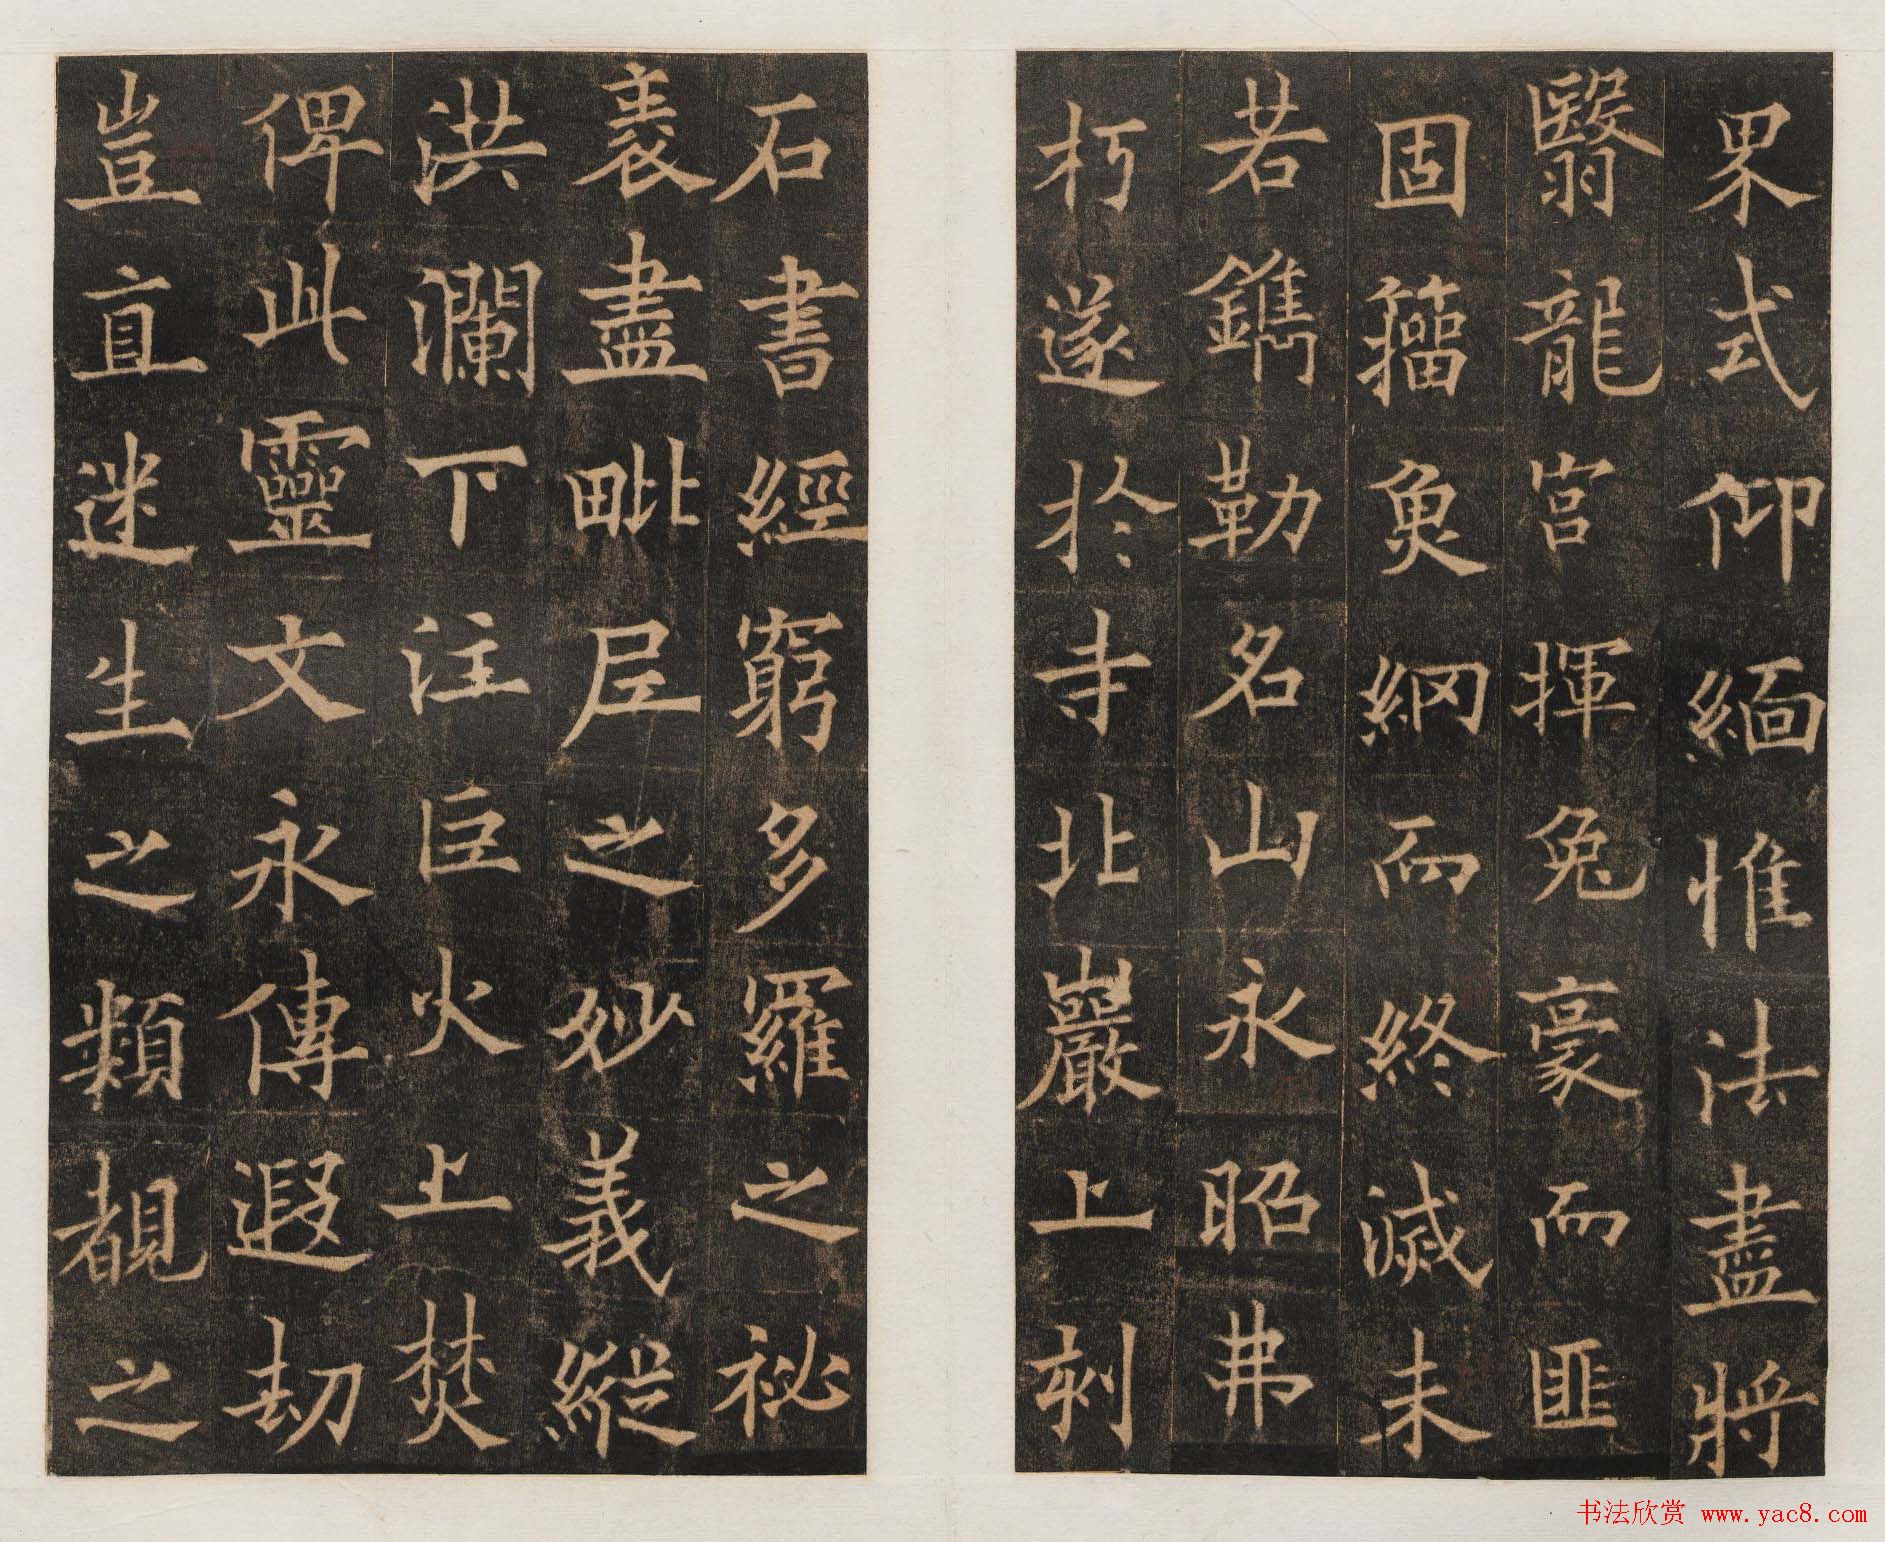 界式仰緬惟法盡將
翳龍宮揮兔豪而匪
固籀魚網而終滅未
若鐫勒名山永昭弗
朽遂於寺北巖上刻
石書經窮多羅之祕
袠盡毗尼之妙義縱
洪瀾下注巨火上焚
俾此靈文永傳遐劫
豈直迷生之類覩之
书法欣赏 www.yac8.com